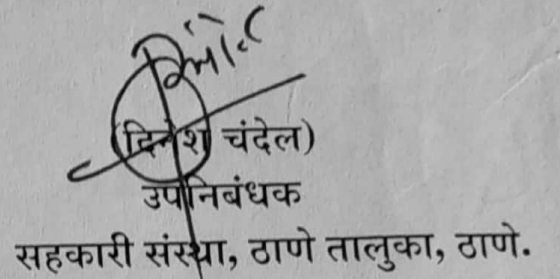 (दिनेश चंदेल)
उपनिबंधक
सहकारी संस्था, ठाणे तालुका, ठाणे.